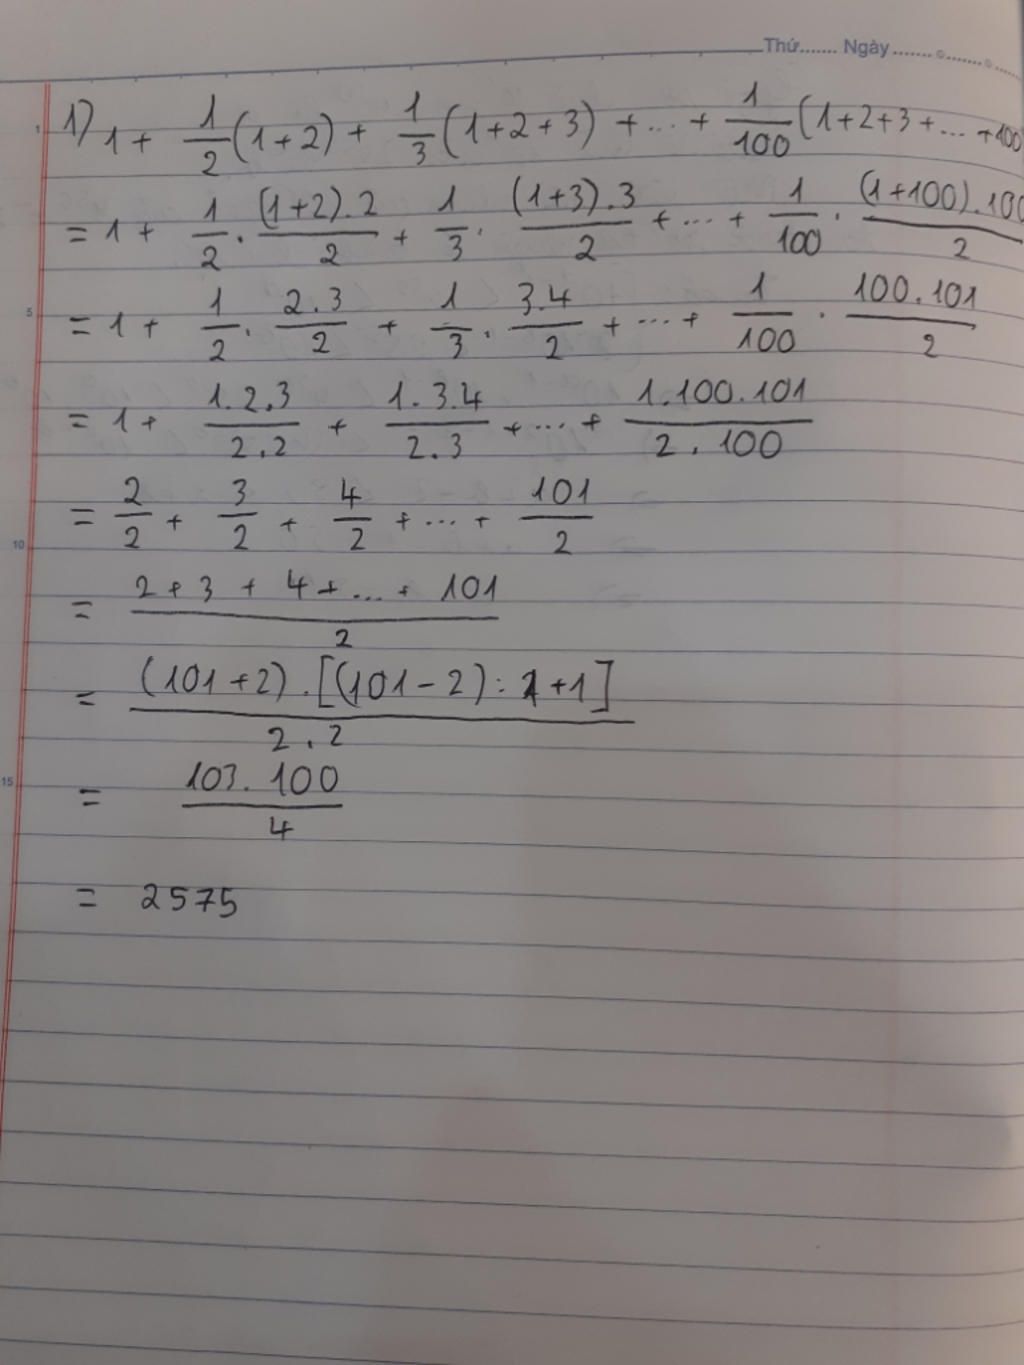 Thứ....... Ngày.......
1) 1 + 1/2 (1+2) + 1/3 (1+2+3) + ... + 1/100 (1+2+3+... +100
= 1 + 1/2 . (1+2).2/2 + 1/3 . (1+3).3/2 + ... + 1/100 . (1+100).100/2
= 1 + 1/2 . 2.3/2 + 1/3 . 3.4/2 + ... + 1/100 . 100.101/2
= 1 + 1.2.3/2.2 + 1.3.4/2.3 + ... + 1.100.101/2.100
= 2/2 + 3/2 + 4/2 + ... + 101/2
= 2 + 3 + 4 + ... + 101/2
= (101+2).[(101-2):1+1]/2.2
= 103.100/4
= 2575
1
5
10
15